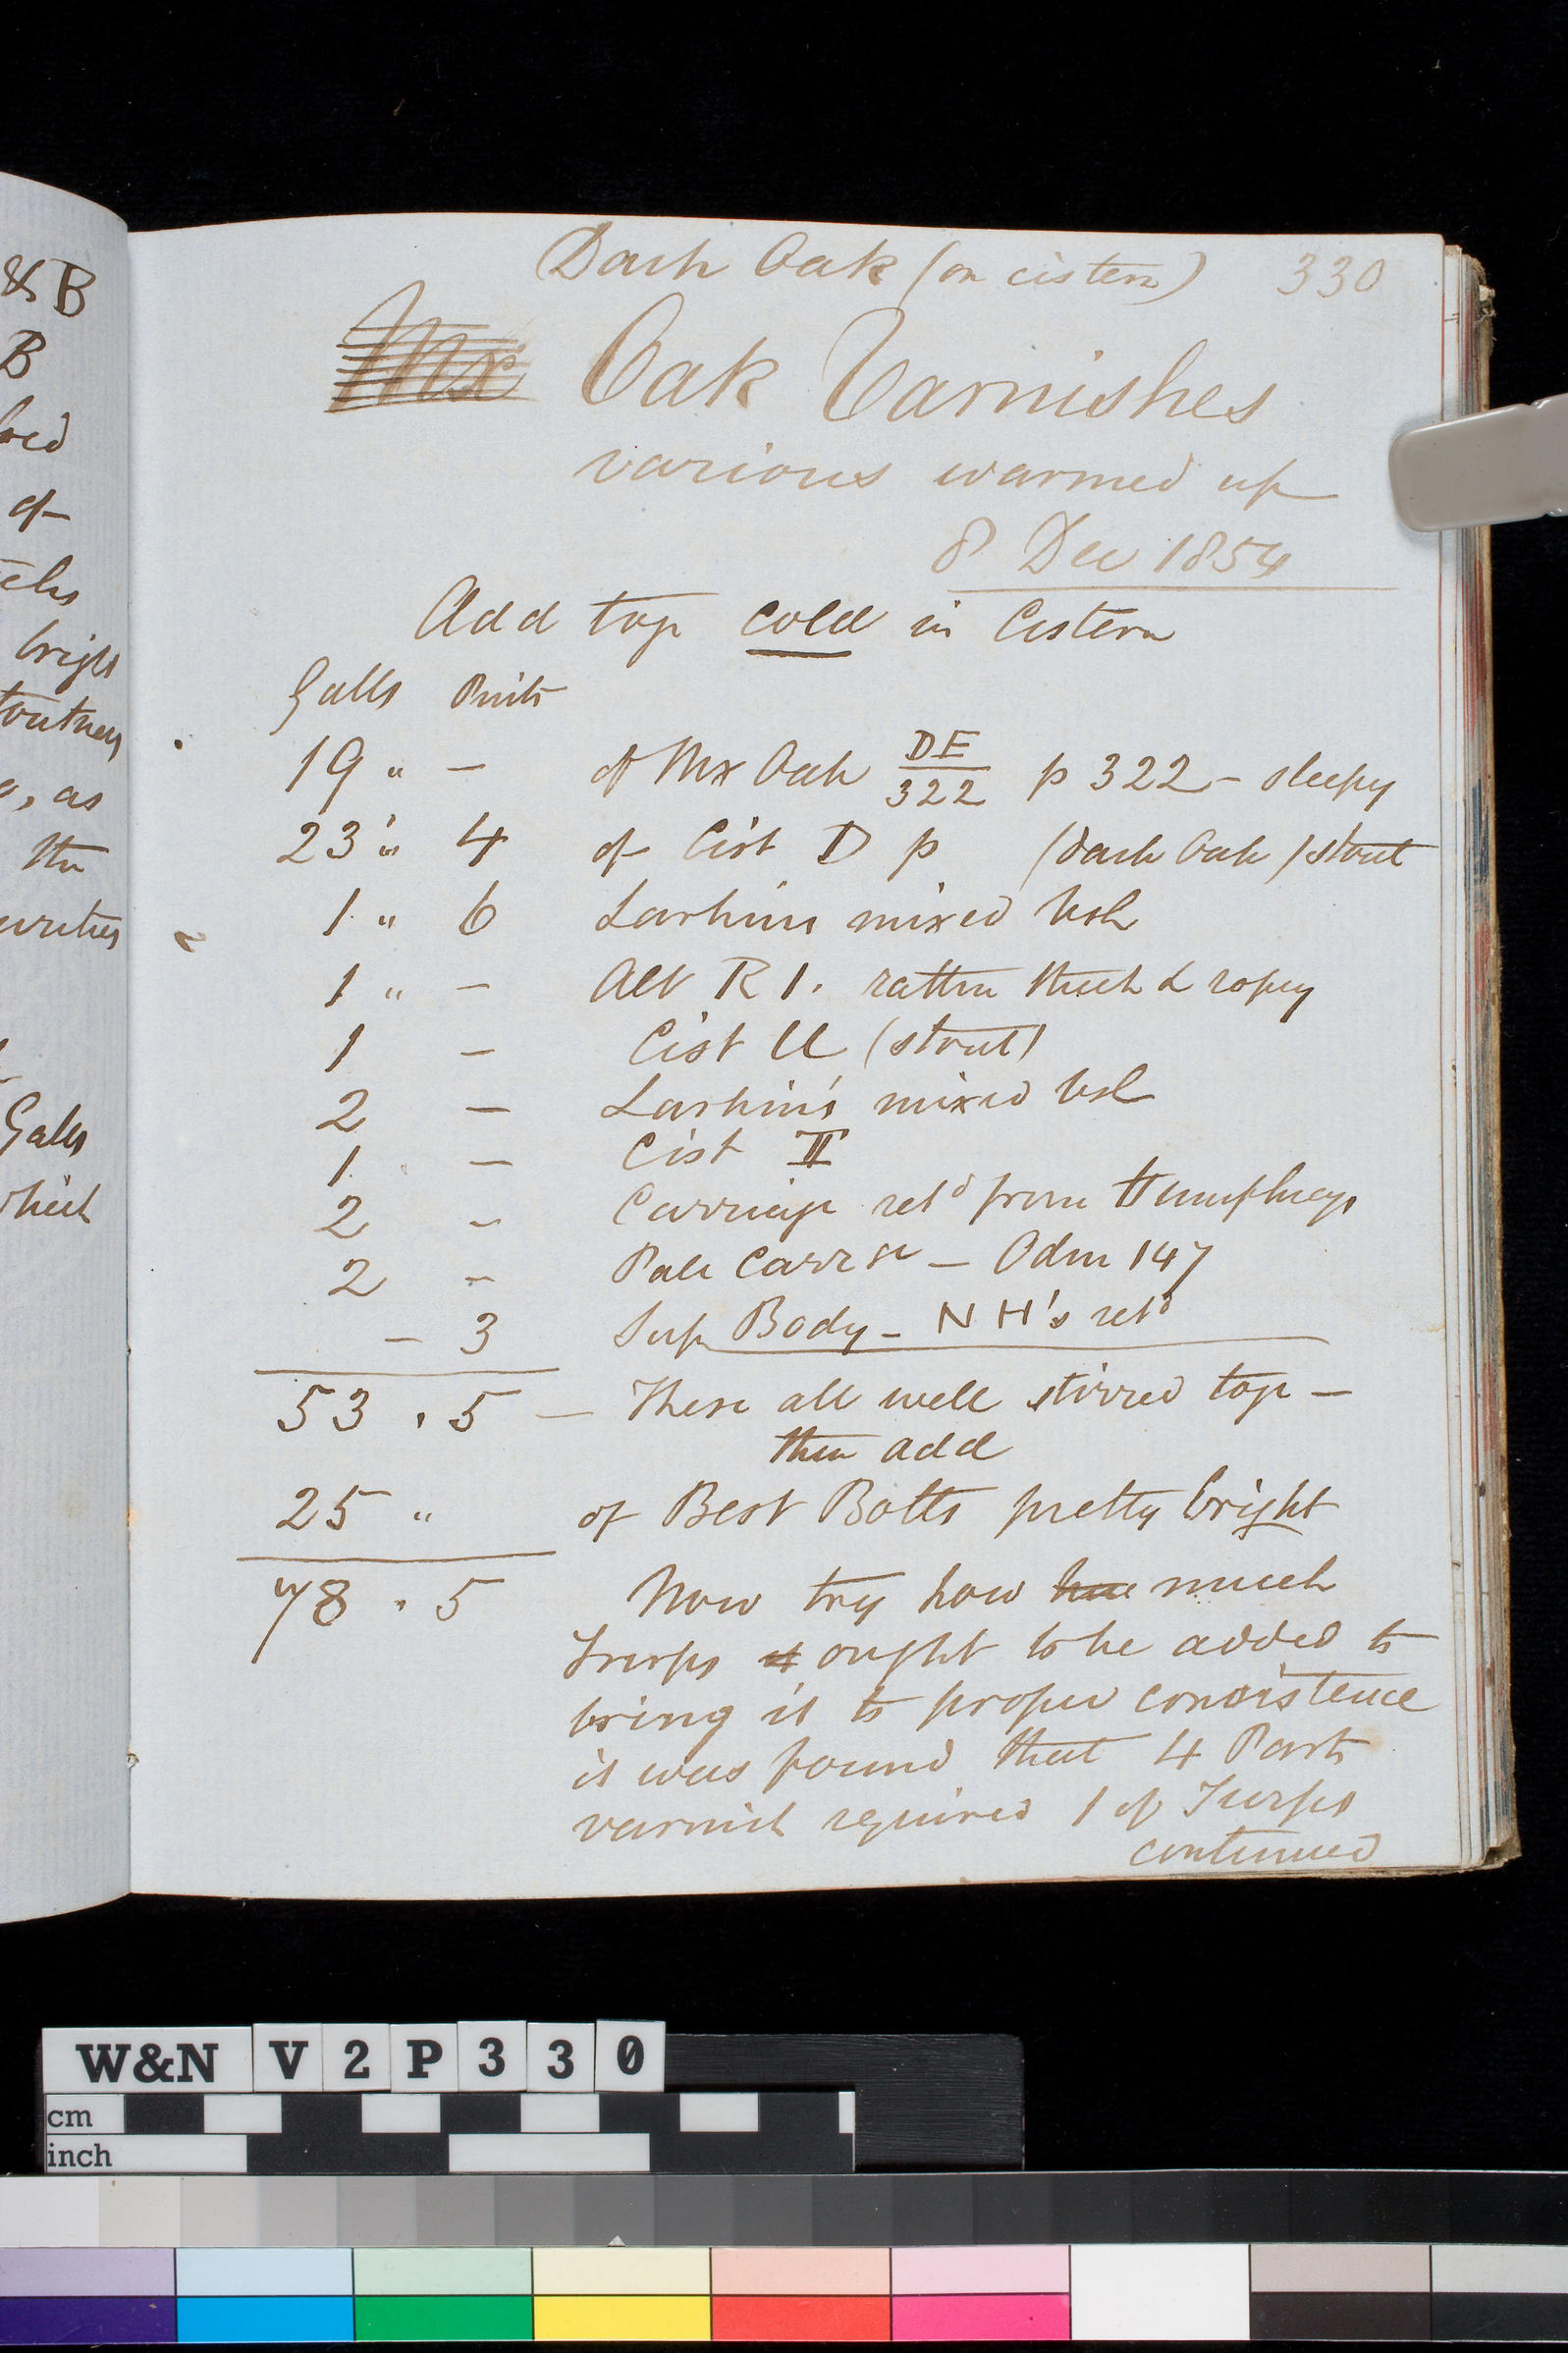 Dark Oak (on cistern) 330
Mx Oak Varnishes
various warmed up
8 Dec 1854
Add top cold in Cistern
Galls Pints
19 " - of Mx Oak DE/322 p 322 - sleepy
23 " 4 of Cist D p (dark Oak) stout
1 " 6 Larkins mixed Vsh
1 " - All R 1. rather thick & ropey
1 - Cist U (stout)
2 - Larkin's mixed Vsh
1 - Cist II
2 - Carriage retd from Humphreys
2 - Pale Carrge - Odm 147
- 3 Sup Body - NH's retd
53 . 5 - These all well stirred top -
then add
25 " of Best Botts pretty bright
78 . 5 Now try how much
Turps ought to be added to
bring it to proper consistence
it was found that 4 Parts
varnish required 1 of Turps
continued
& B
B
of
bright
as
the
Galls
which
W&N V2P330
cm
inch